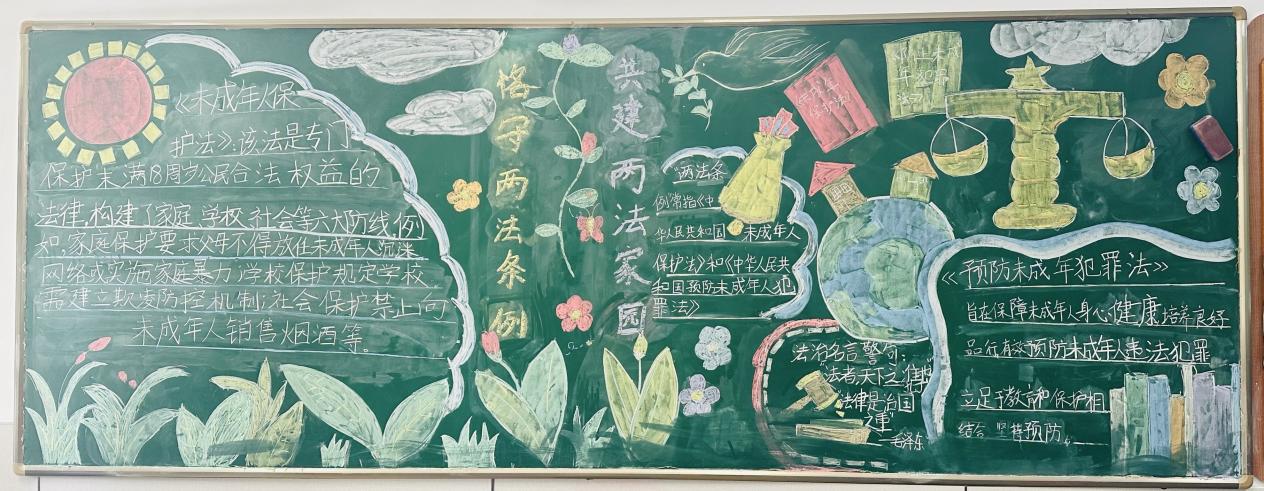 《未成年人保
护法》:该法是专门
保护未满18周岁公民合法权益的
法律,构建了家庭、学校、社会等六大防线,例
如,家庭保护要求父母不得放任未成年人沉迷
网络或实施家庭暴力;学校保护规定学校
需建立欺凌防控机制;社会保护禁止向
未成年人销售烟酒等。
恪守两法条例
共建两法家园
两法条
例常指《中
华人民共和国未成年人
保护法》和《中华人民共
和国预防未成年人犯
罪法》
法治名言警句:
法者,天下之准
绳
法律是治国
之重
——毛泽东
《预防未成年犯罪法》
旨在保障未成年人身心健康培养良好
品行有效预防未成年人违法犯罪
立足于教育和保护相
结合 坚持预防。